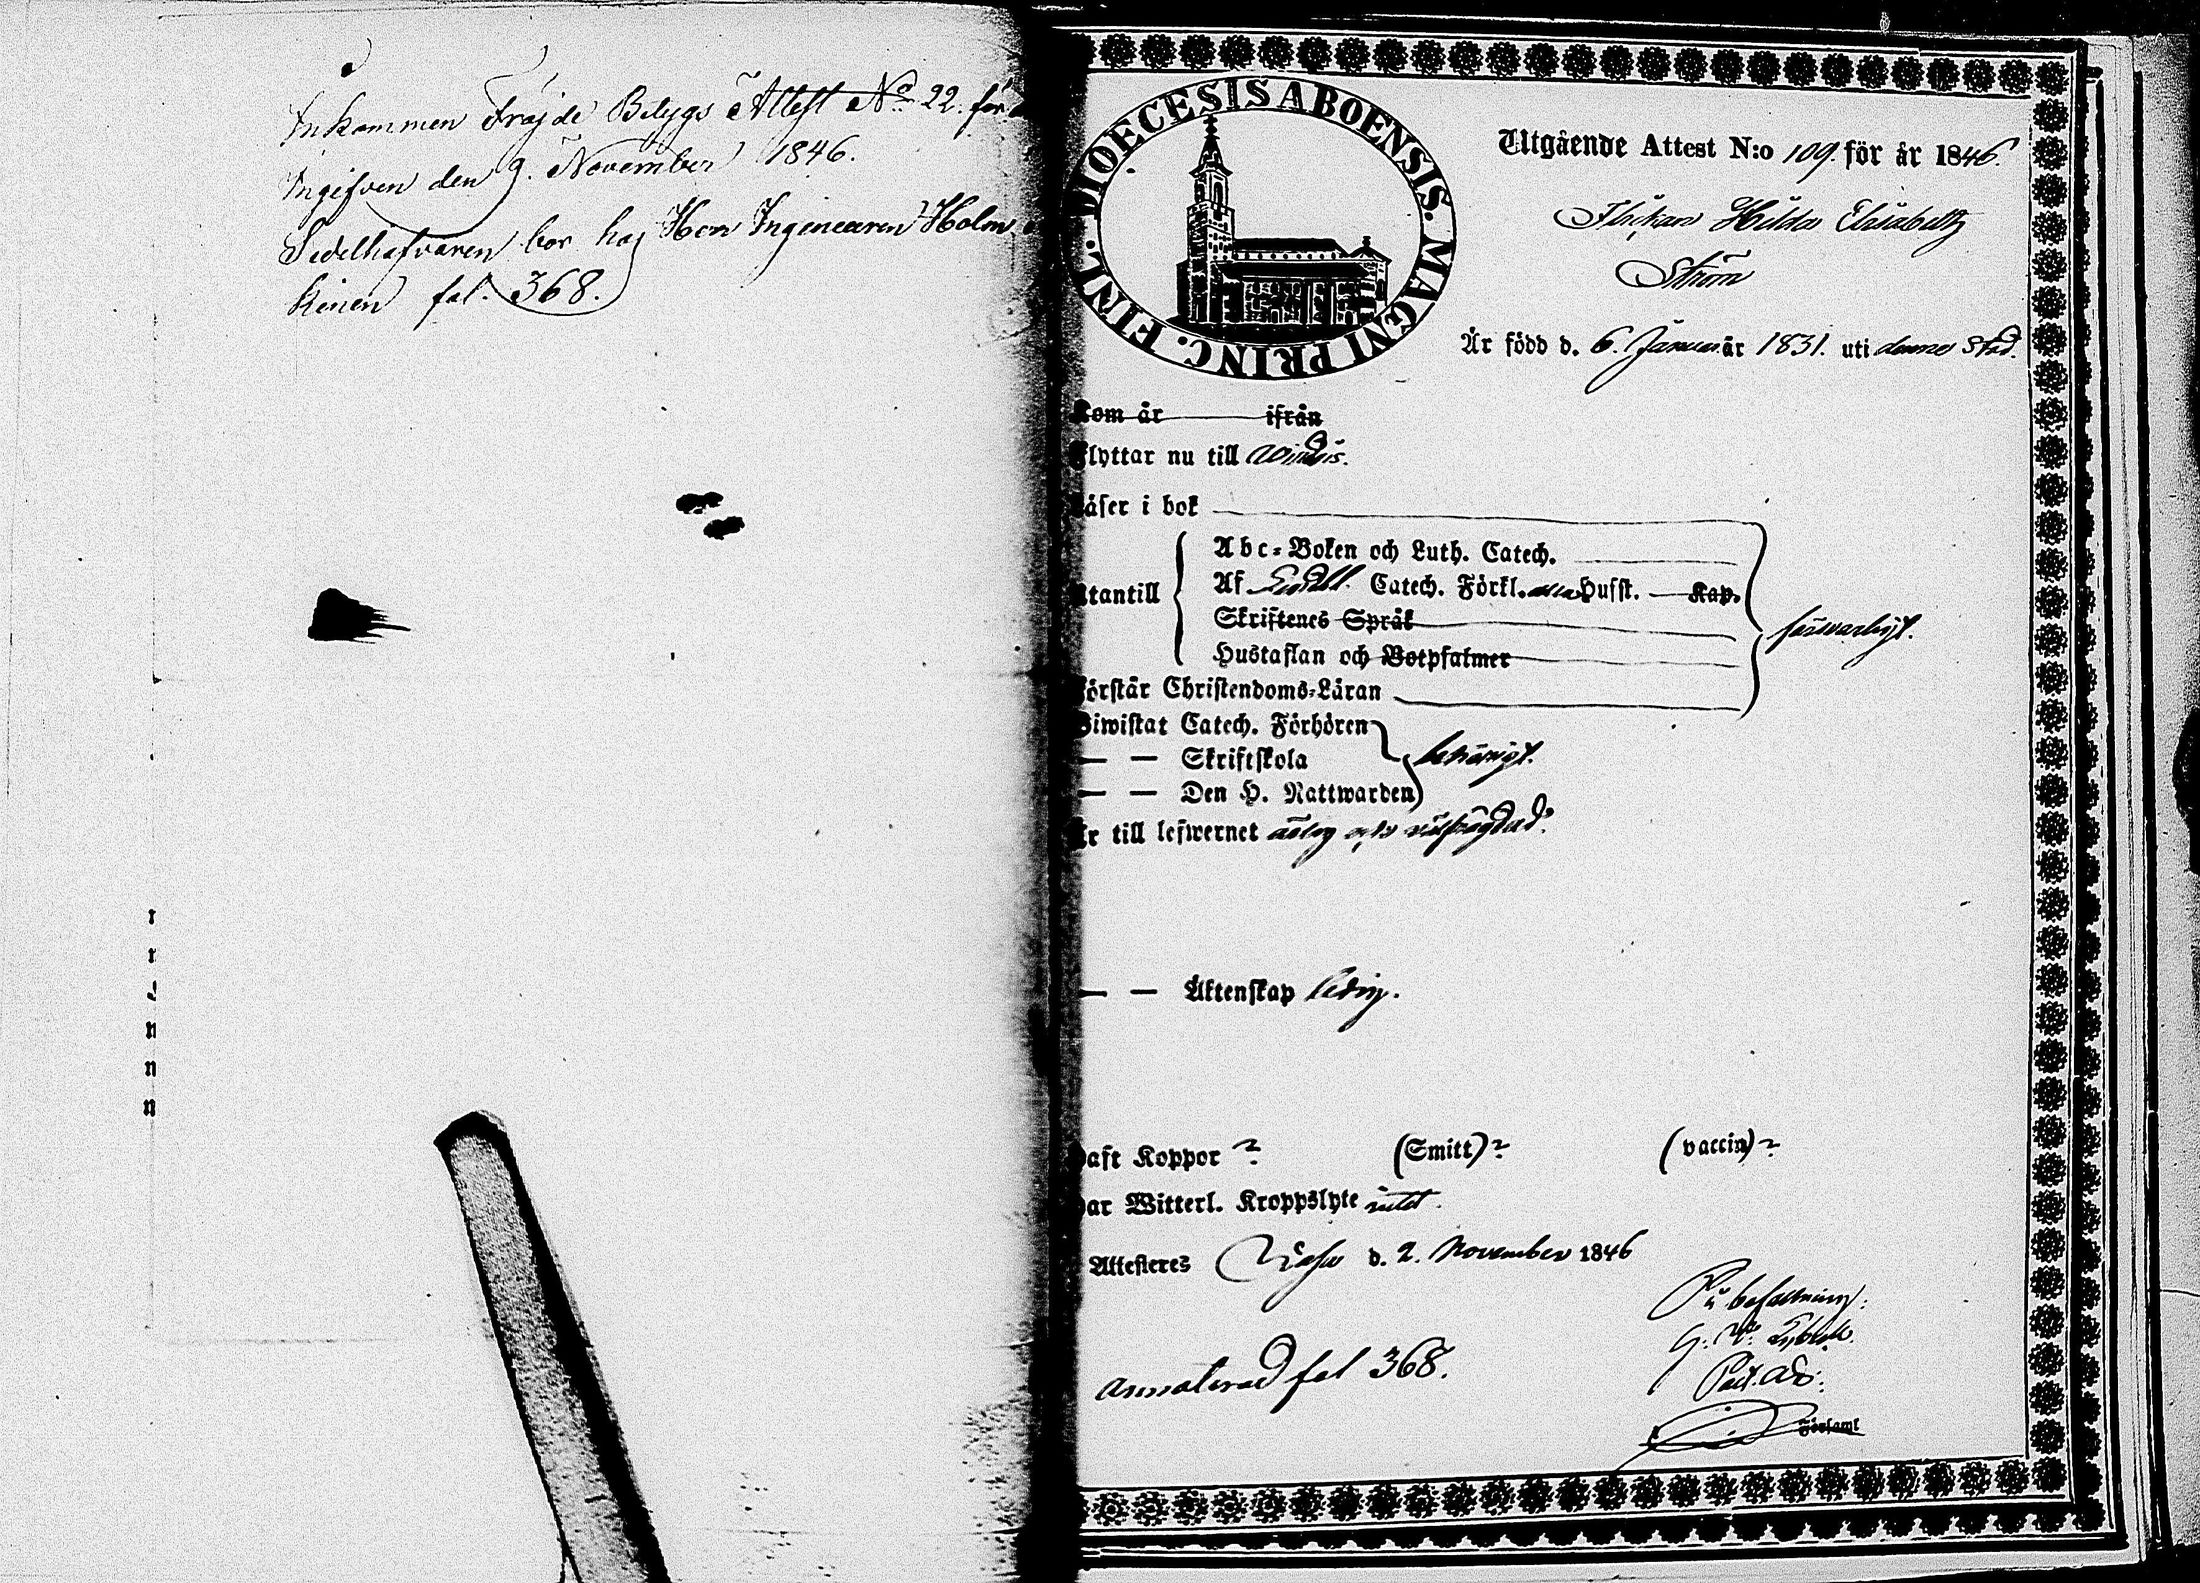 Inkommen Frejde Betygs Attest No 22. för
Ingifven den 9. November 1846.
Sedelhafvaren bor hos Herr Ingeneuren Holm
kinen fol. 368.
DIOECESIS ABOENSIS. MAGNI PRINC. FINL.
Utgående Attest N:o 109. för år 1846.
Flickan Hilda Elisabeth
Ström
Är född d. 6. Januari är 1831. uti denne Stad.
Kom år ifrån
Flyttar nu till
Läser i bok
Abc-Boken och Luth. Catech.
Utantill
Af Catech. Förkl. Husst. Kap.
Skriftenes Språk
försvarligt.
Hustaflan och Botpsalmer
Förstår Christendoms-Läran
Biwistat Catech. Förhören
— — Skriftskola
behörigt.
— — Den H. Nattwarden
Är till lefwernet ärlig och välfrägdad.
— — Äktenskap ledig.
Haft Koppor ? (Smitt) ? (vaccin) ?
Har Witterl. Kroppslyte intet.
Attesteres Wasa d. 2. November 1846
På befallning:
annoterad fol 368.
Past. Adj.
Församl